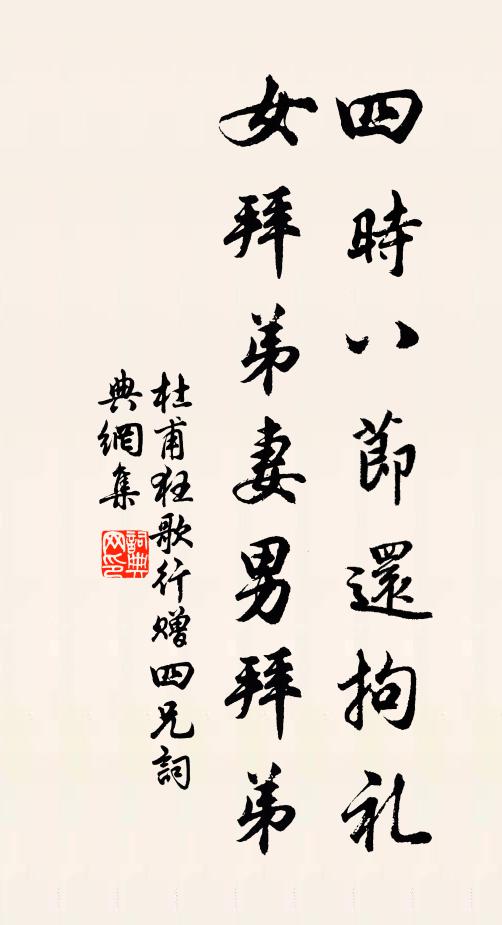 四時八節還拘礼
女拜弟妻男拜弟
杜甫狂歌行赠四兄詞
典網集
詞典
网印